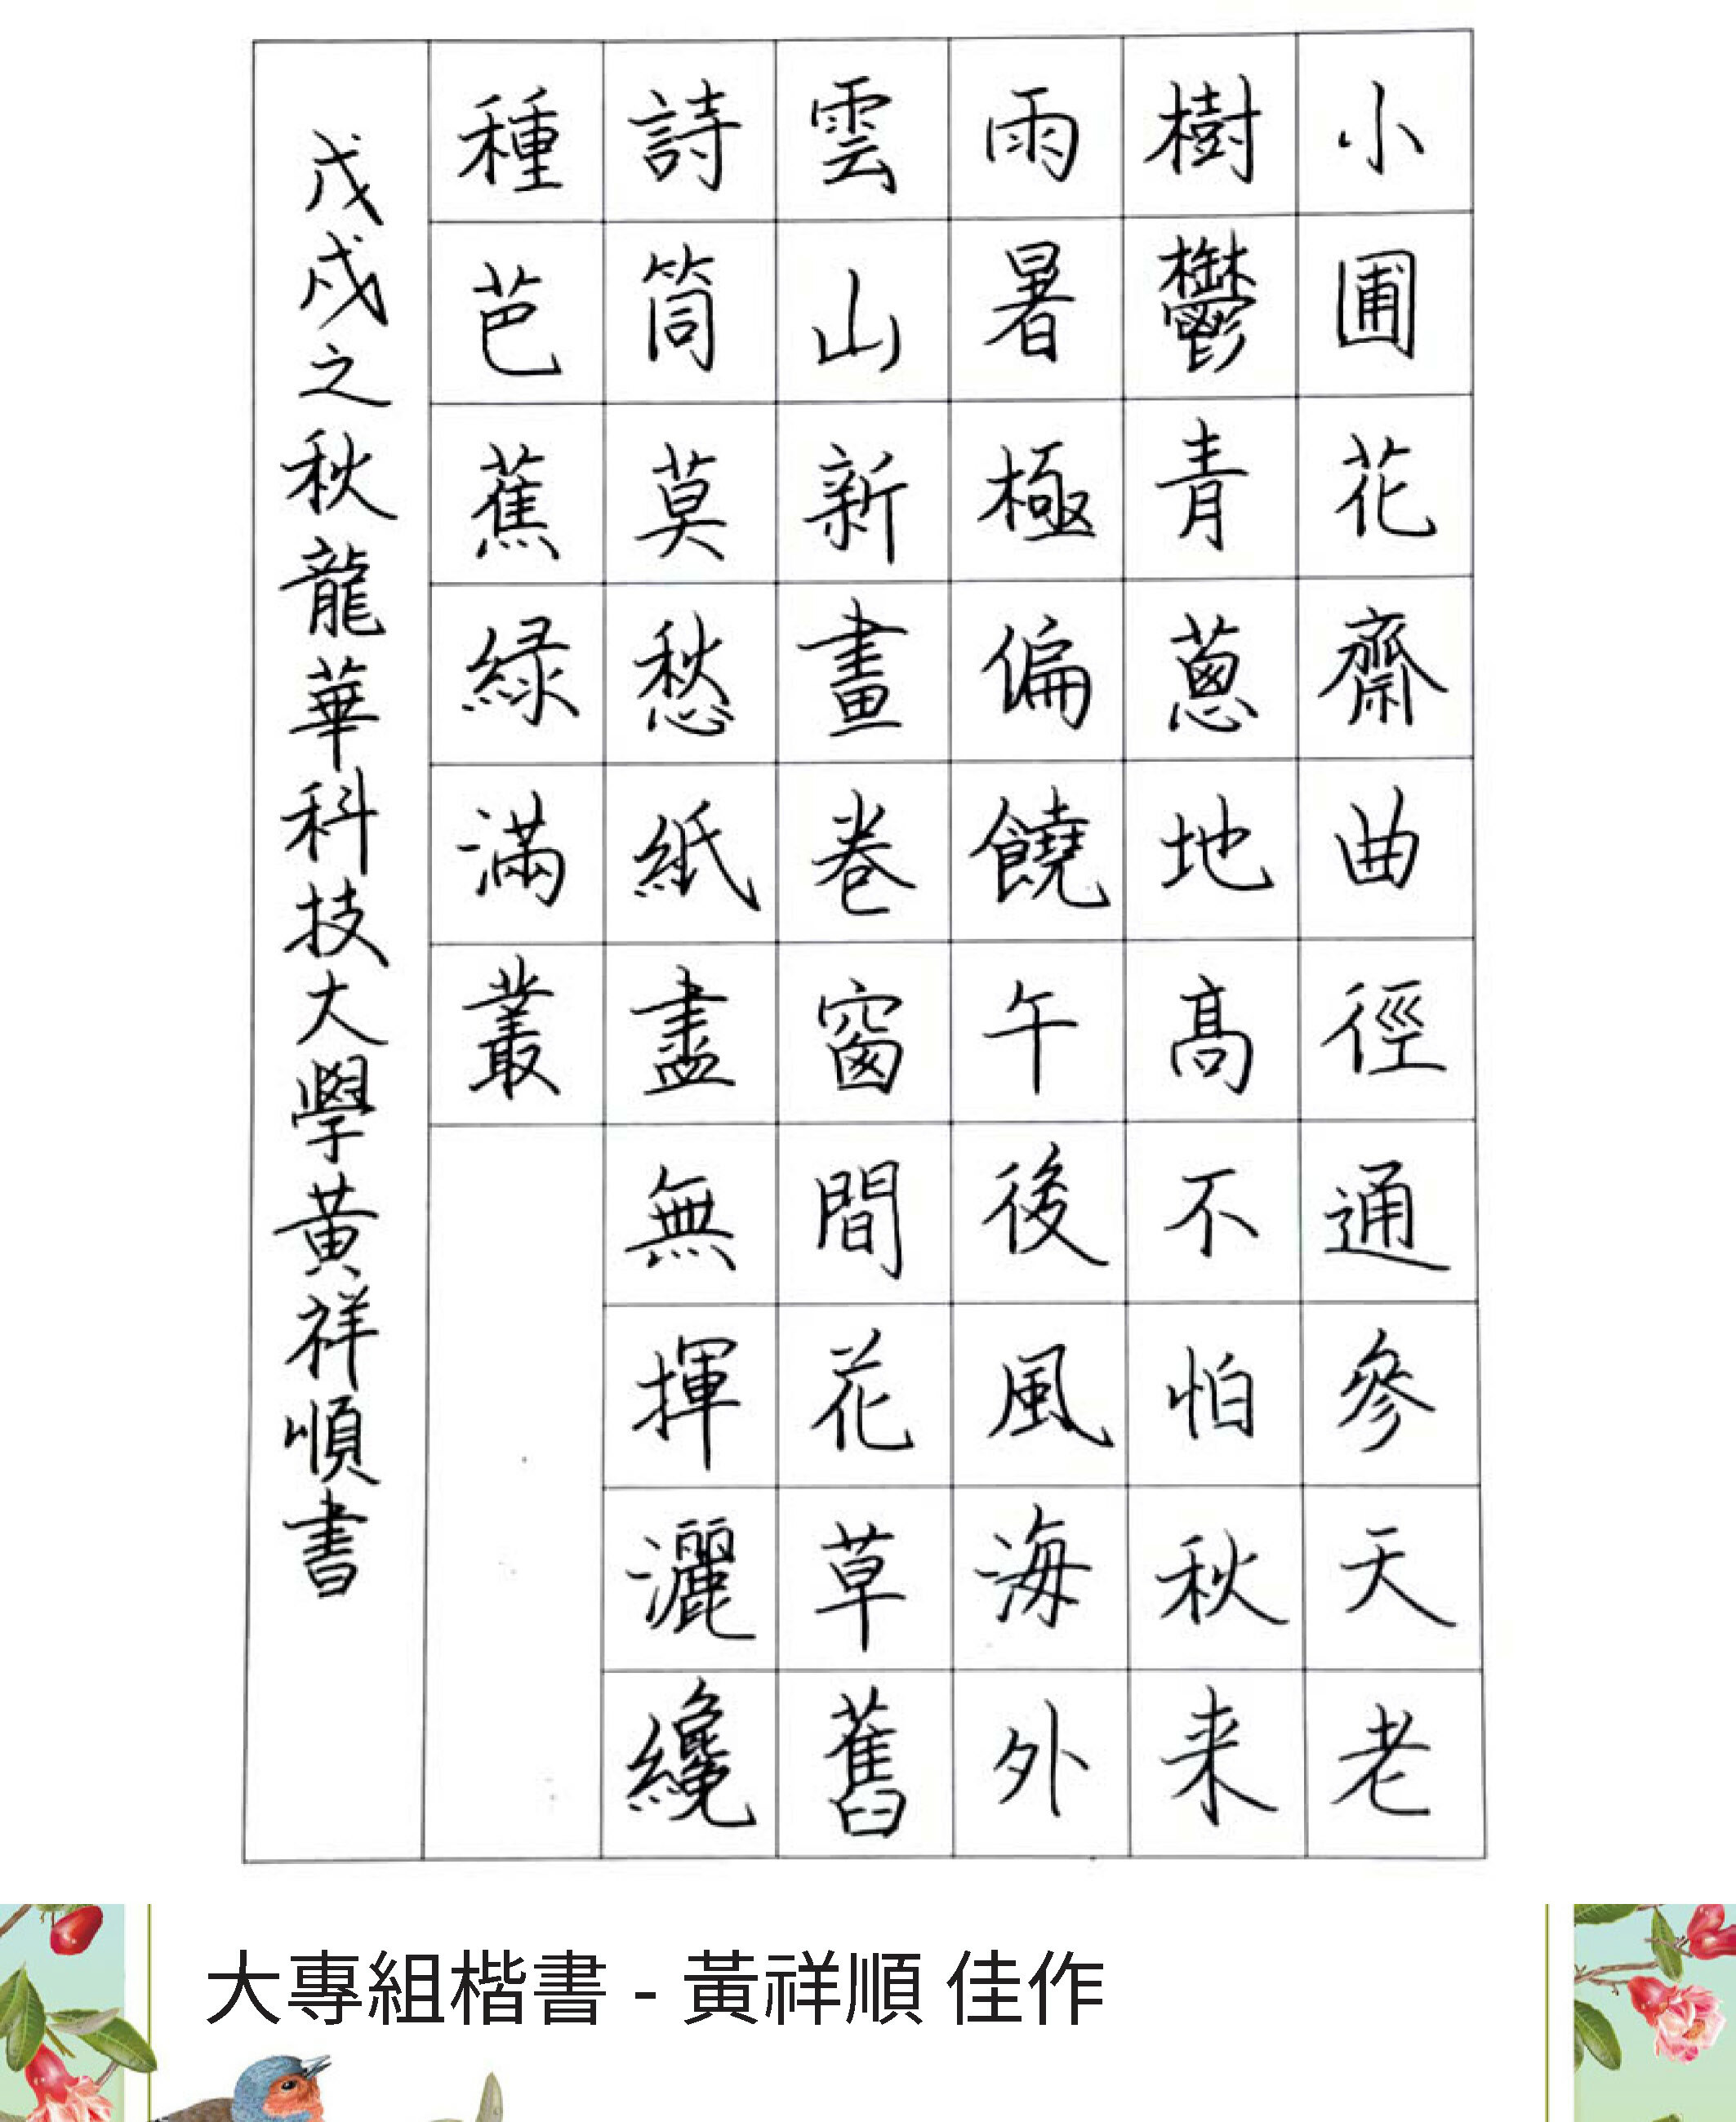 小圃花齋曲徑通參天老
樹鬱青蔥地高不怕秋来
雨暑極偏饒午後風海外
雲山新畫卷窗間花草舊
詩筒莫愁紙盡無揮灑纔
種芭蕉綠滿叢
戊戌之秋龍華科技大學黃祥順書
大專組楷書 - 黃祥順 佳作